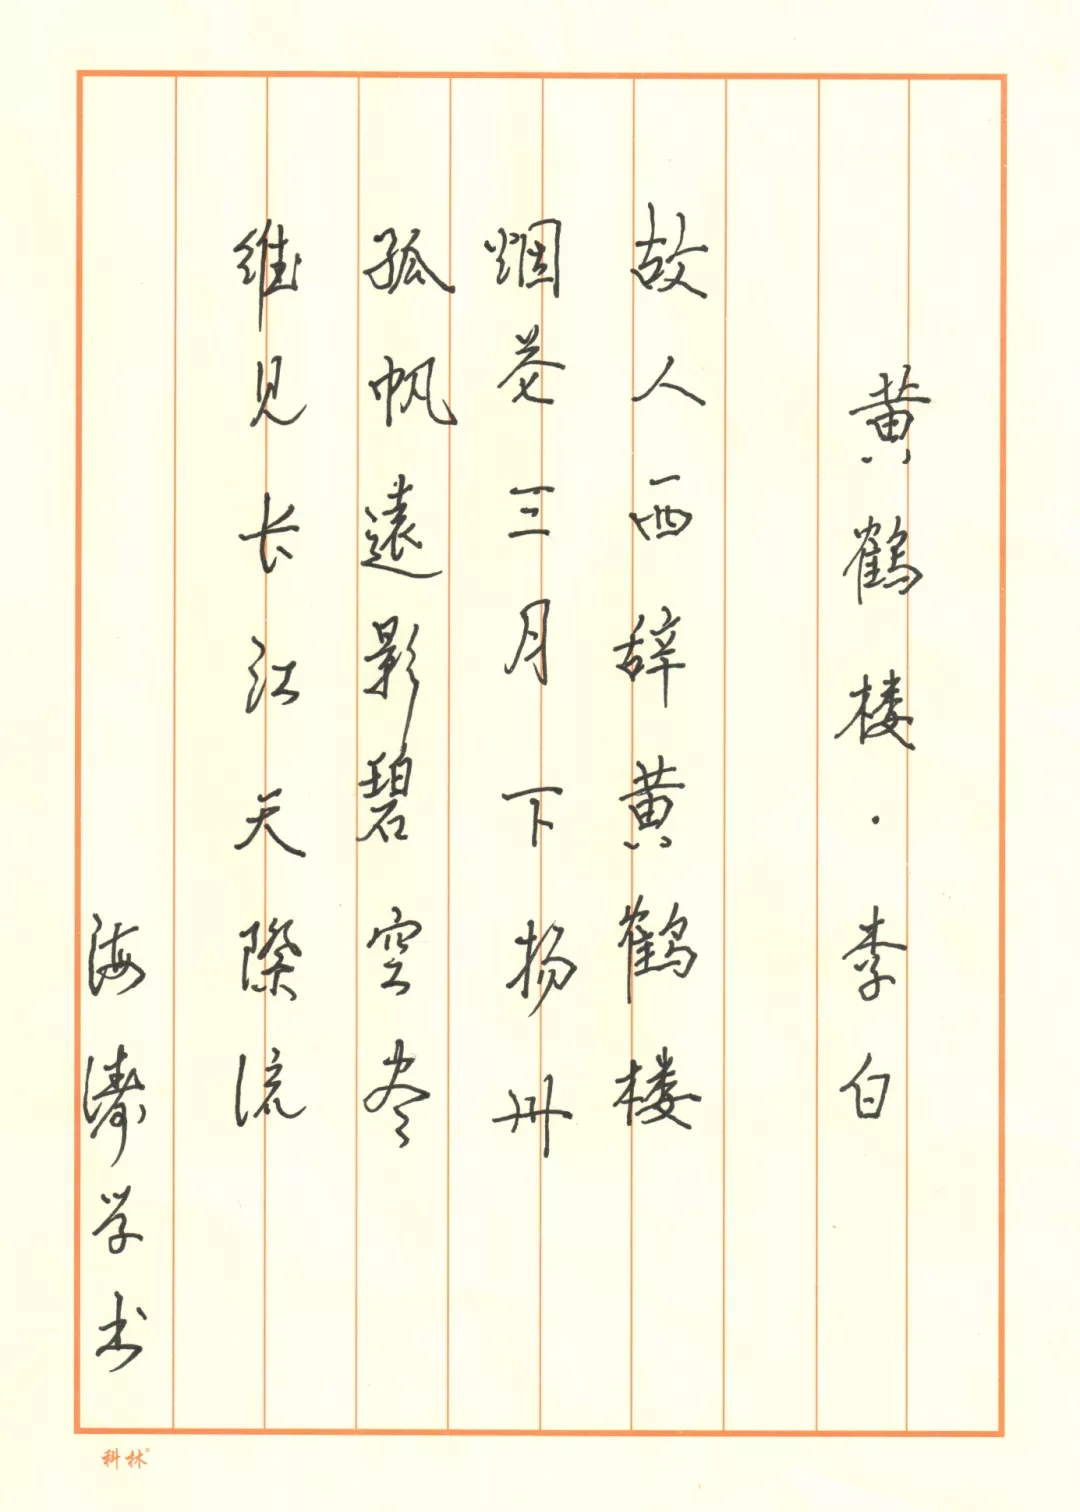 黄鹤楼·李白
故人西辞黄鹤楼
烟花三月下扬州
孤帆遠影碧空尽
维见长江天際流
海涛学书
科林